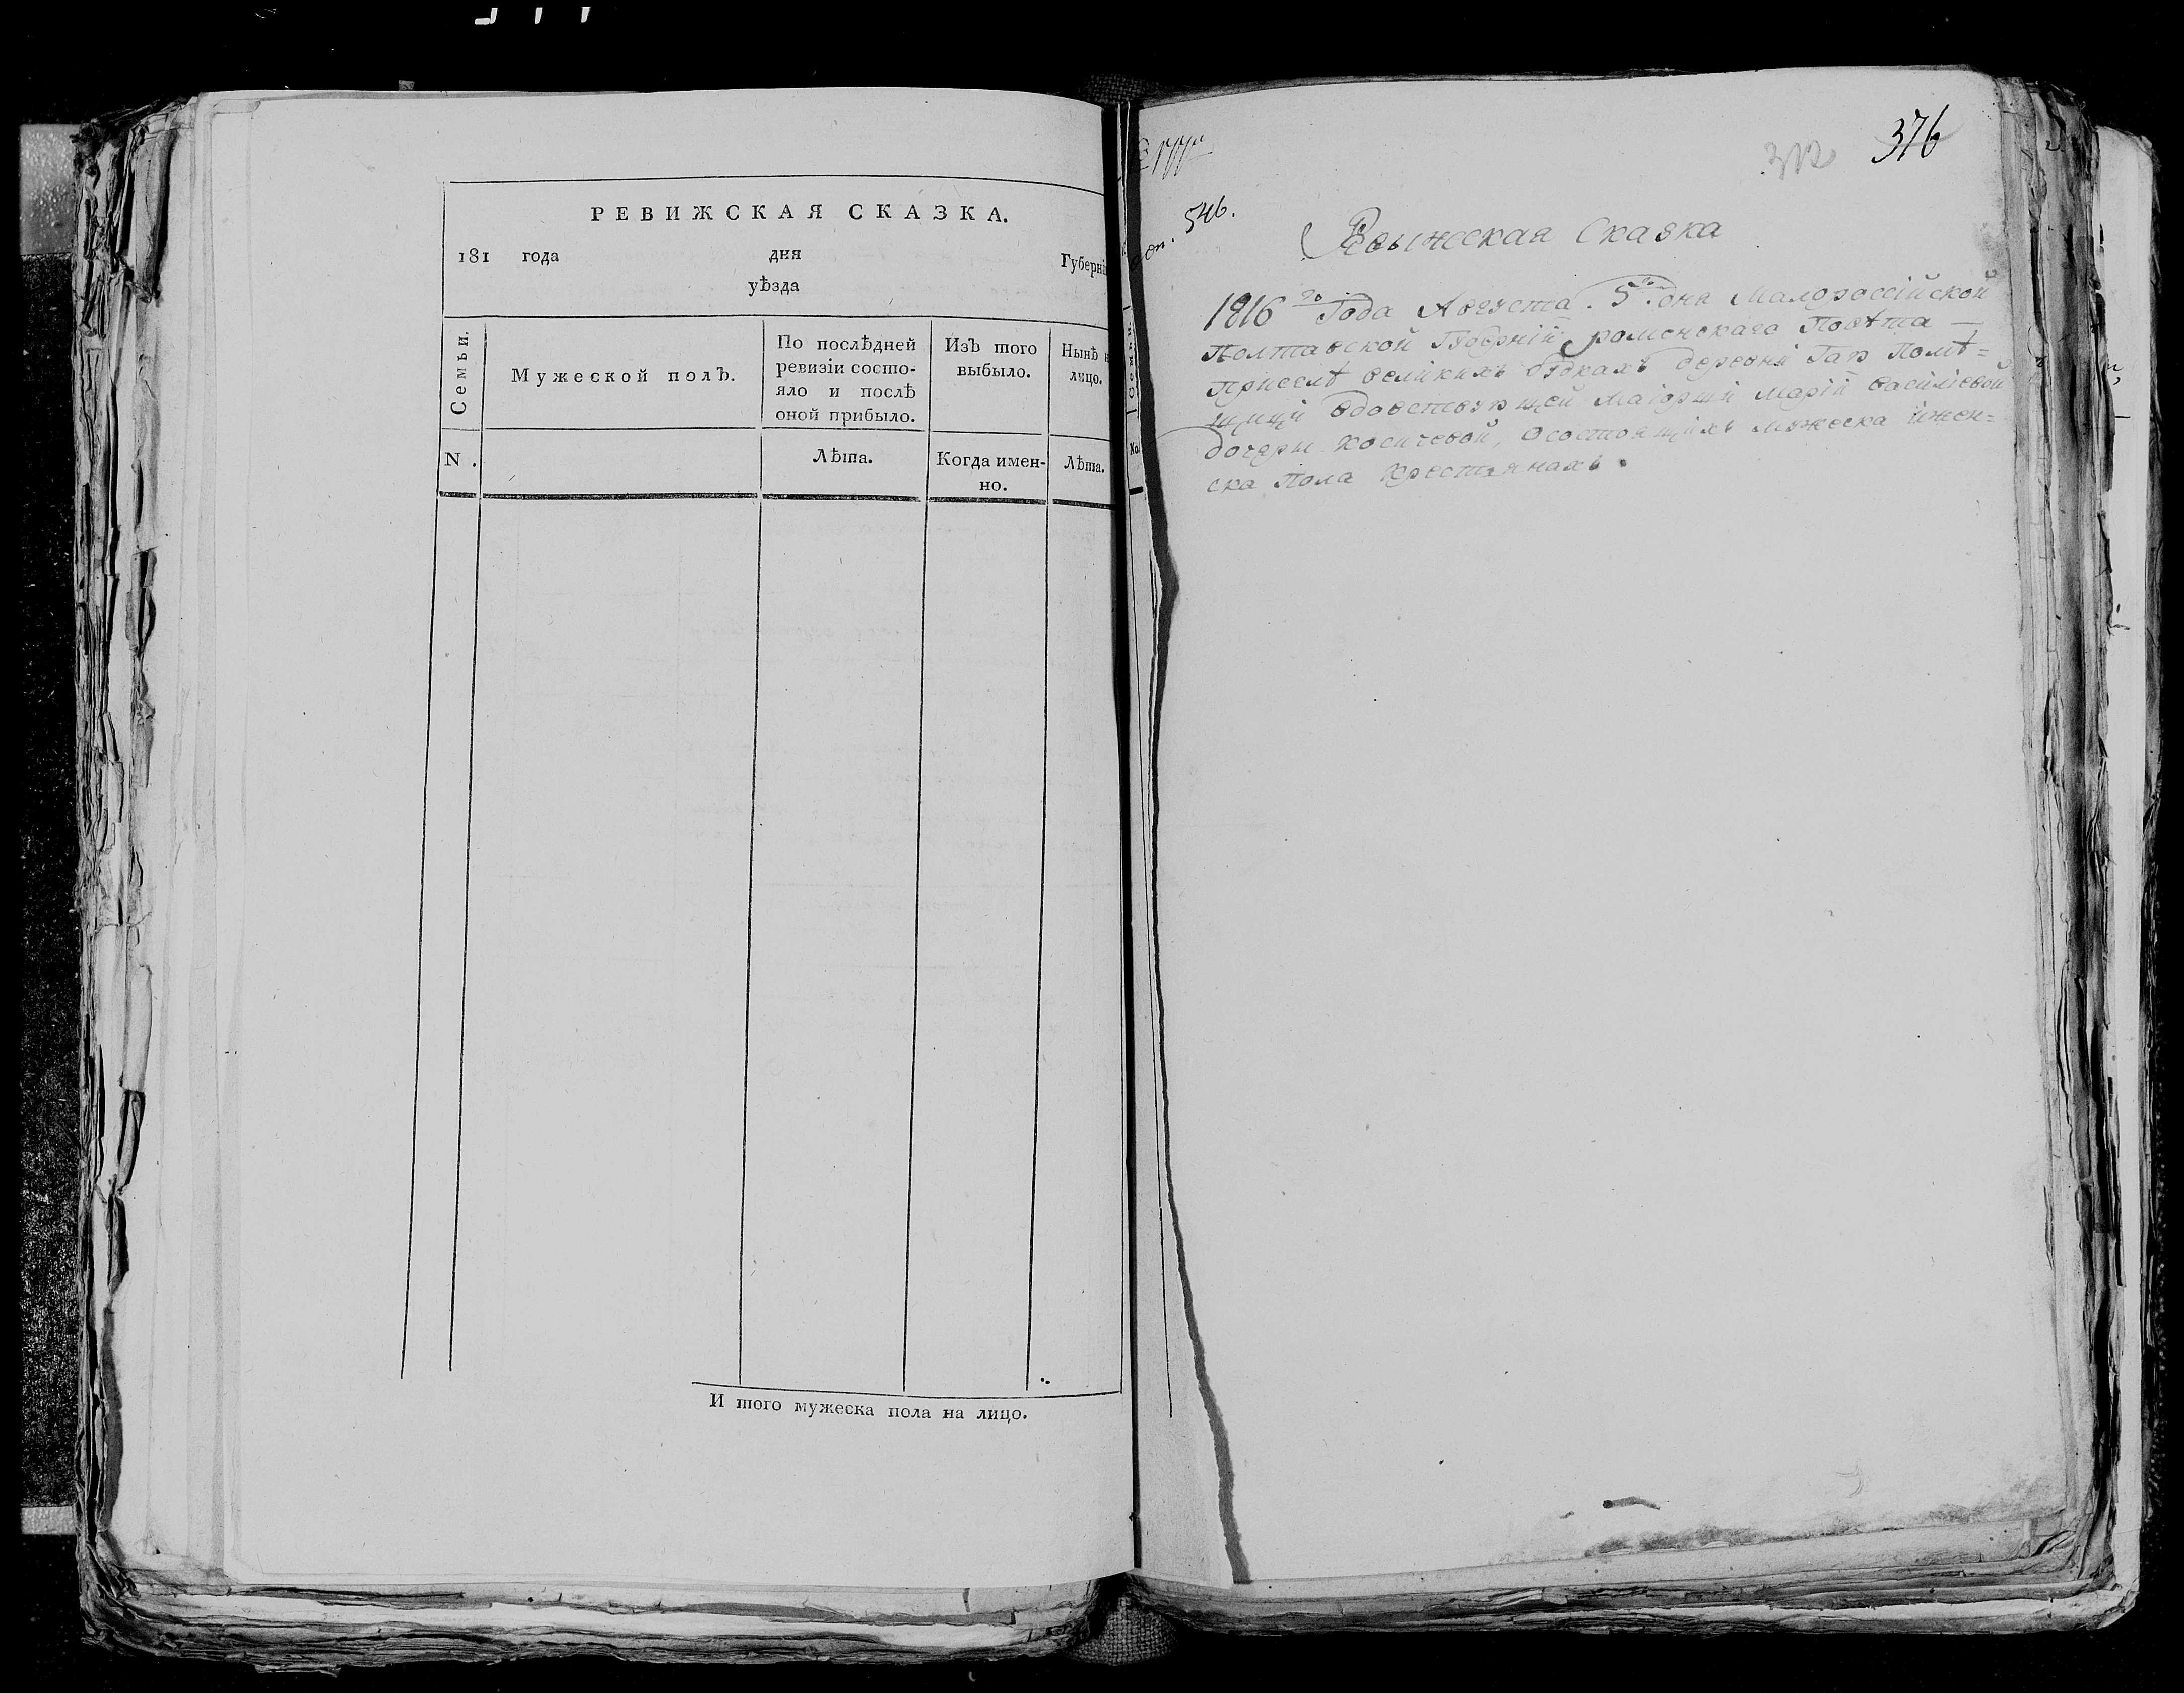 РЕВИЖСКАЯ СКАЗКА.
181 года дня Губерні
уѣзда
Семьи. Мужеской полъ. По послѣдней ревизіи состо- Изъ того Нынѣ н
яло и послѣ выбыло. лицо.
оной прибыло.
N. Лѣта. Когда имен- Лѣта.
но.
И того мужеска пола на лицо.
No.
376
546.
Ревыжская Сказка
1816 го Года Августа 5 дня Малороссійской
Полтавской Губерніи роменскаго Повѣта —
Приселѣ великихъ будкахъ деревни Гаю Помѣ=
щици вдовствующей Маіорши Маріи василіевой
дочеры Косичевой, Осостоящихъ мужеска ижен=
ска Пола Крестянахъ.